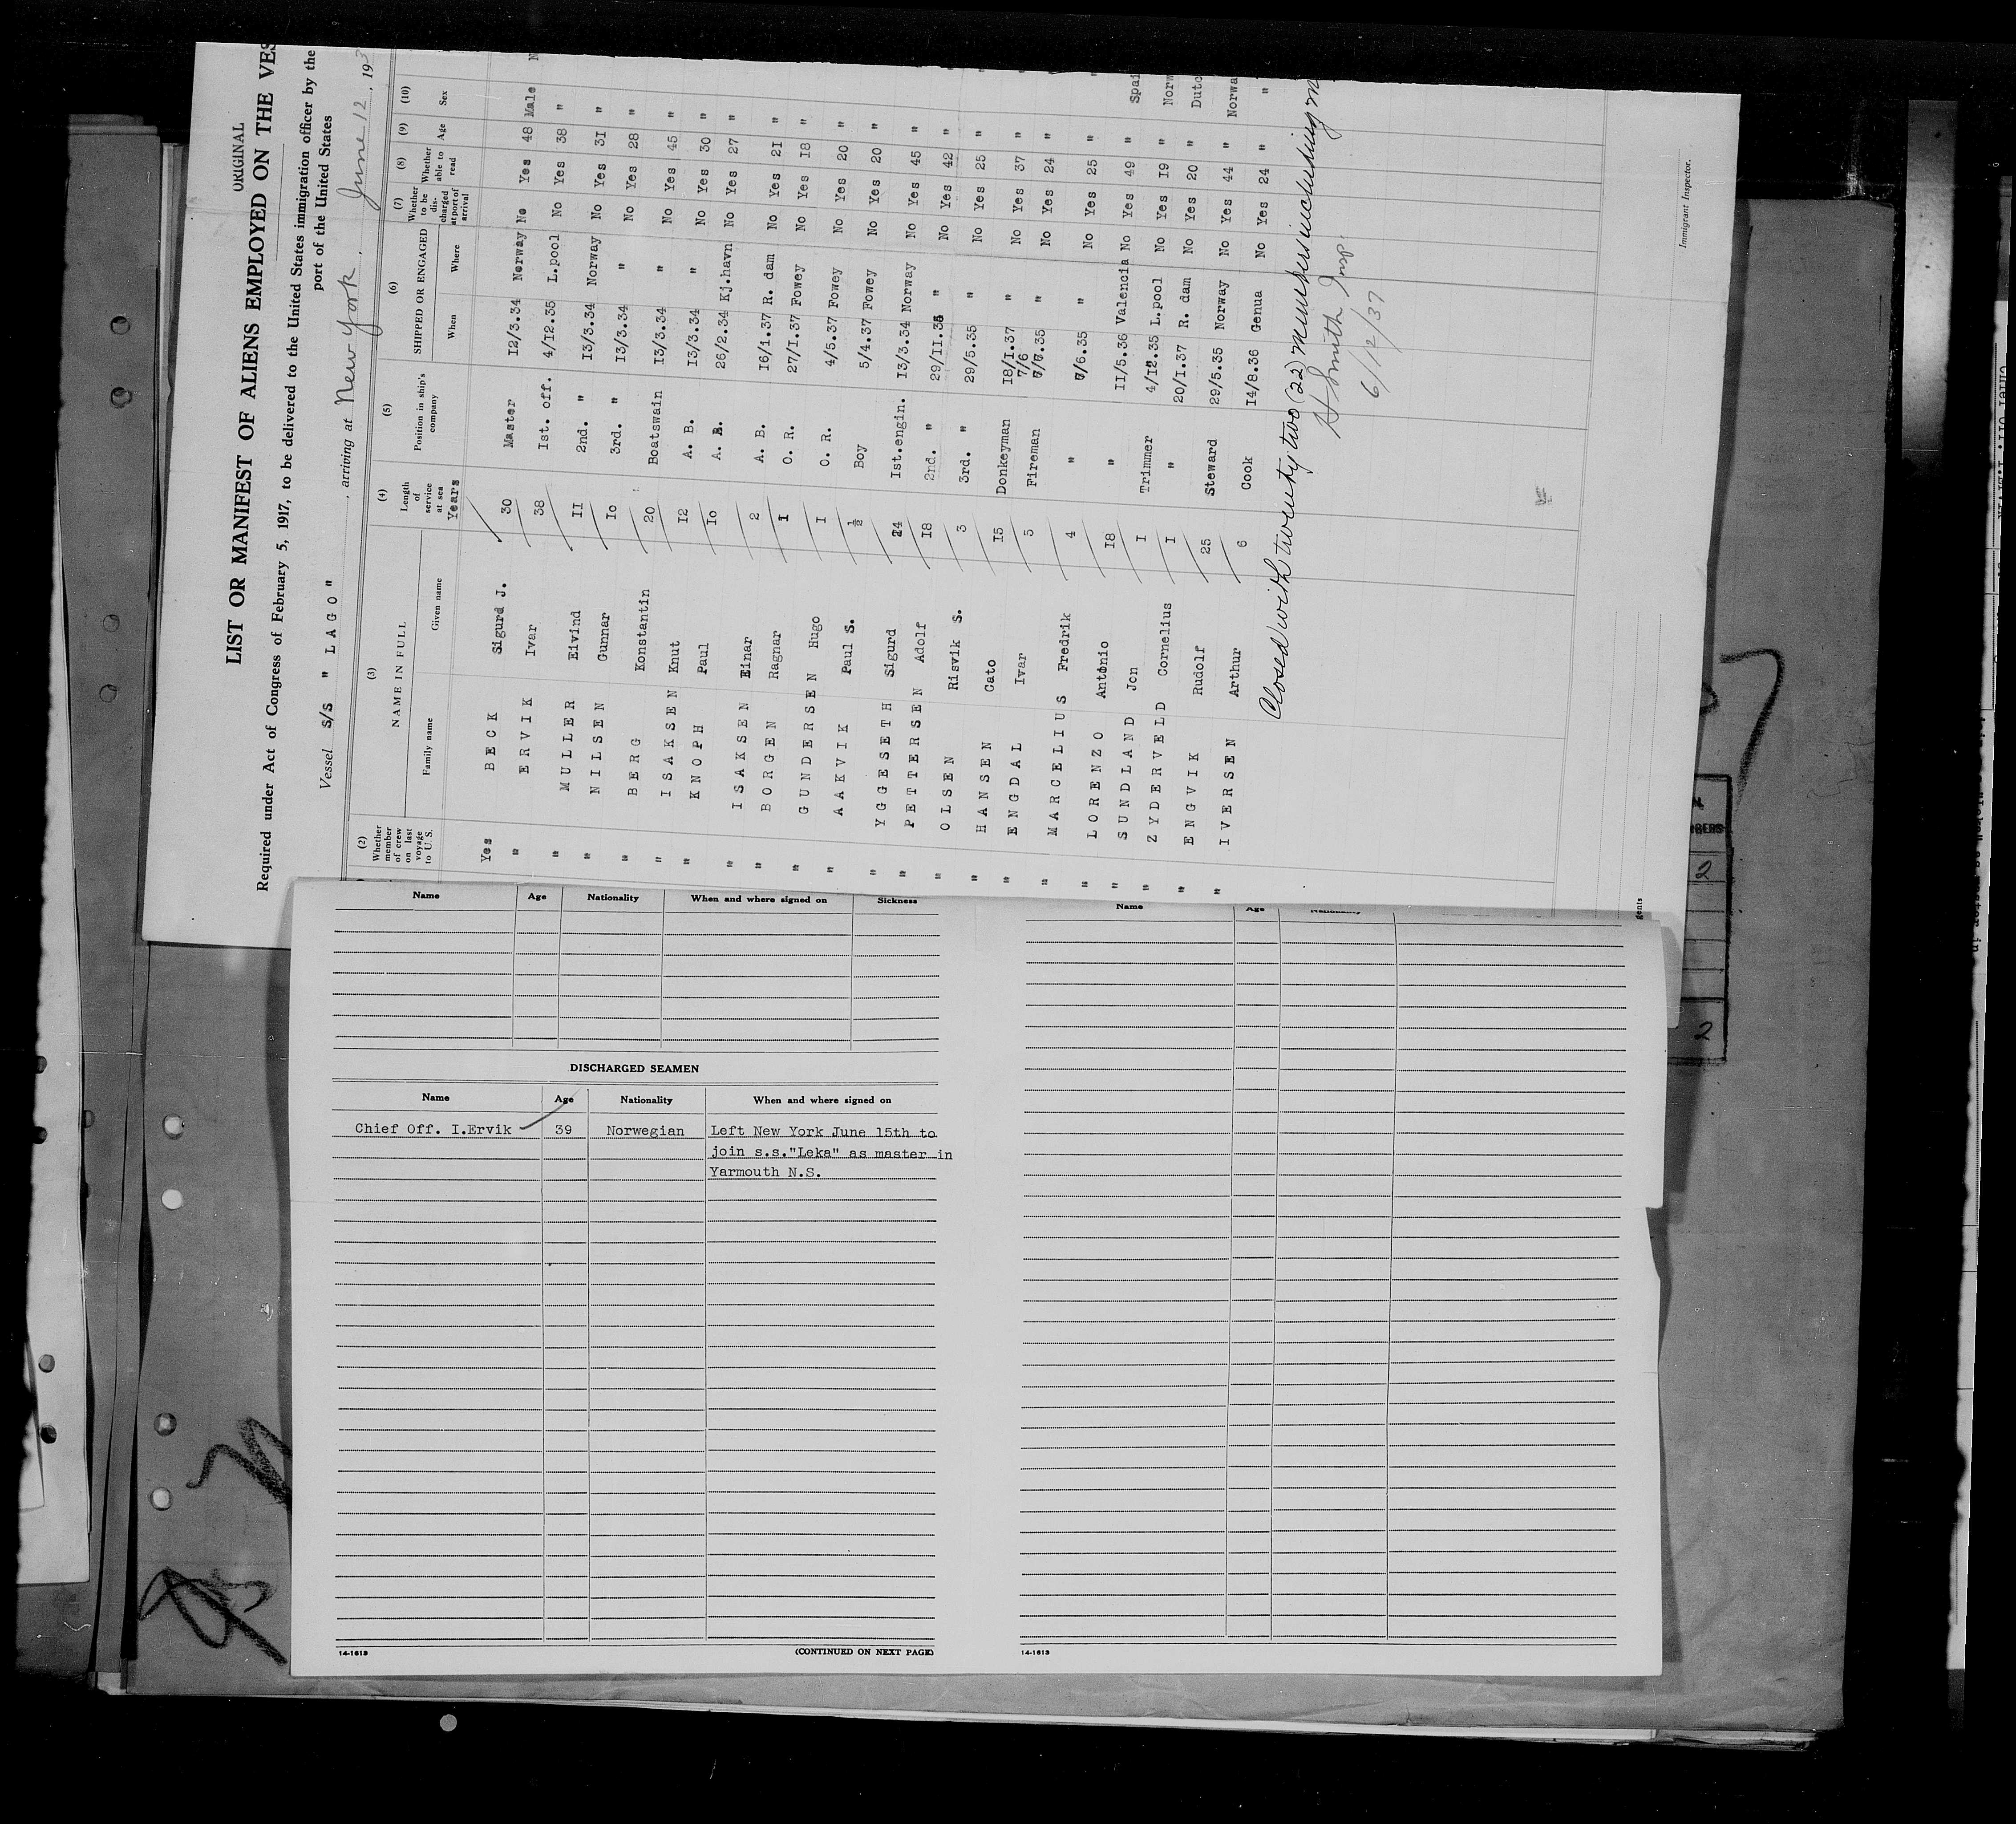 ORIGINAL
LIST OR MANIFEST OF ALIENS EMPLOYED ON THE
Required under Act of Congress of February 5, 1917, to be delivered to the United States immigration officer by the
port of the United States
Vessel S/S " LAGO " , arriving at New York , June 12 , 193
(2) (3) (4) (5) (6) (7) (8) (9) (10)
Whether member of crew on last voyage to U. S. NAME IN FULL Length of service at sea Position in ship's company SHIPPED OR ENGAGED Whether to be discharged at port of arrival Whether able to read Age Sex
Family name Given name When Where
Years
Yes BECK Sigurd J. 30 Master 12/3.34 Norway No Yes 48 Male N
" ERVIK Ivar 38 Ist. off. 4/12.35 L.pool No Yes 38 "
" MULLER Eivind II 2nd. " I3/3.34 Norway No Yes 3I "
" NILSEN Gunnar Io 3rd. " I3/3.34 " No Yes 28 "
" BERG Konstantin 20 Boatswain I3/3.34 " No Yes 45 "
" ISAKSEN Knut I2 A. B. I3/3.34 " No Yes 30 "
" KNOPH Paul Io A. B. 26/2.34 Kj.havn No Yes 27 "
" ISAKSEN Einar 2 A. B. I6/I.37 R. dam No Yes 2I "
" BORGEN Ragnar I O. R. 27/I.37 Fowey No Yes I8 "
" GUNDERSEN Hugo I O. R. 4/5.37 Fowey No Yes 20 "
" AAKVIK Paul S. ½ Boy 5/4.37 Fowey No Yes 20 "
" YGGESETH Sigurd 24 Ist.engin. I3/3.34 Norway No Yes 45 "
" PETTERSEN Adolf I8 2nd. " 29/II.35 " No Yes 42 "
" OLSEN Risvik S. 3 3rd. " 29/5.35 " No Yes 25 "
" HANSEN Cato I5 Donkeyman I8/I.37 " No Yes 37 "
" ENGDAL Ivar 5 Fireman 7/6.35 " No Yes 24 "
" MARCELIUS Fredrik 4 " 6/6.35 " No Yes 25 "
" LORENZO António I8 " II/5.36 Valencia No Yes 49 " Spai
" SUNDLAND Jon I Trimmer 4/I2.35 L.pool No Yes I9 " Norw
" ZYDERVELD Cornelius I " 20/I.37 R. dam No Yes 20 " Dutc
" ENGVIK Rudolf 25 Steward 29/5.35 Norway No Yes 44 " Norwa
" IVERSEN Arthur 6 Cook I4/8.36 Genua No Yes 24 " "
Closed with twenty two (22) members including m
H Smith Insp.
6/12/37
Immigrant Inspector.
Name Age Nationality When and where signed on Sickness
DISCHARGED SEAMEN
Name Age Nationality When and where signed on
Chief Off. I.Ervik 39 Norwegian Left New York June 15th to
join s.s."Leka" as master in
Yarmouth N.S.
14-1613
(CONTINUED ON NEXT PAGE)
Name Age Nationality
14-1613
gents
2
2